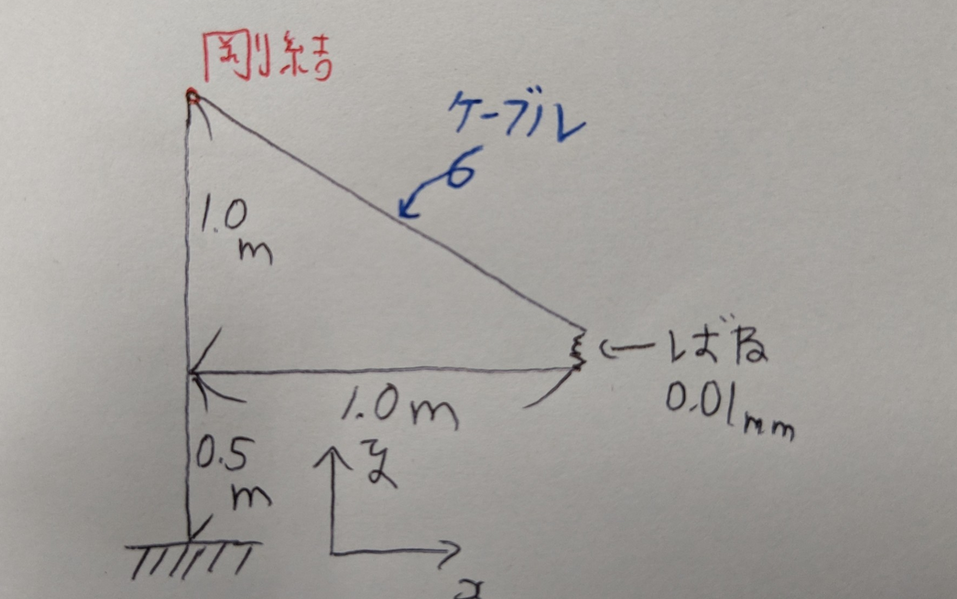 剛結
ケーブル
1.0
m
ばね
0.01mm
1.0m
0.5
m
z
x